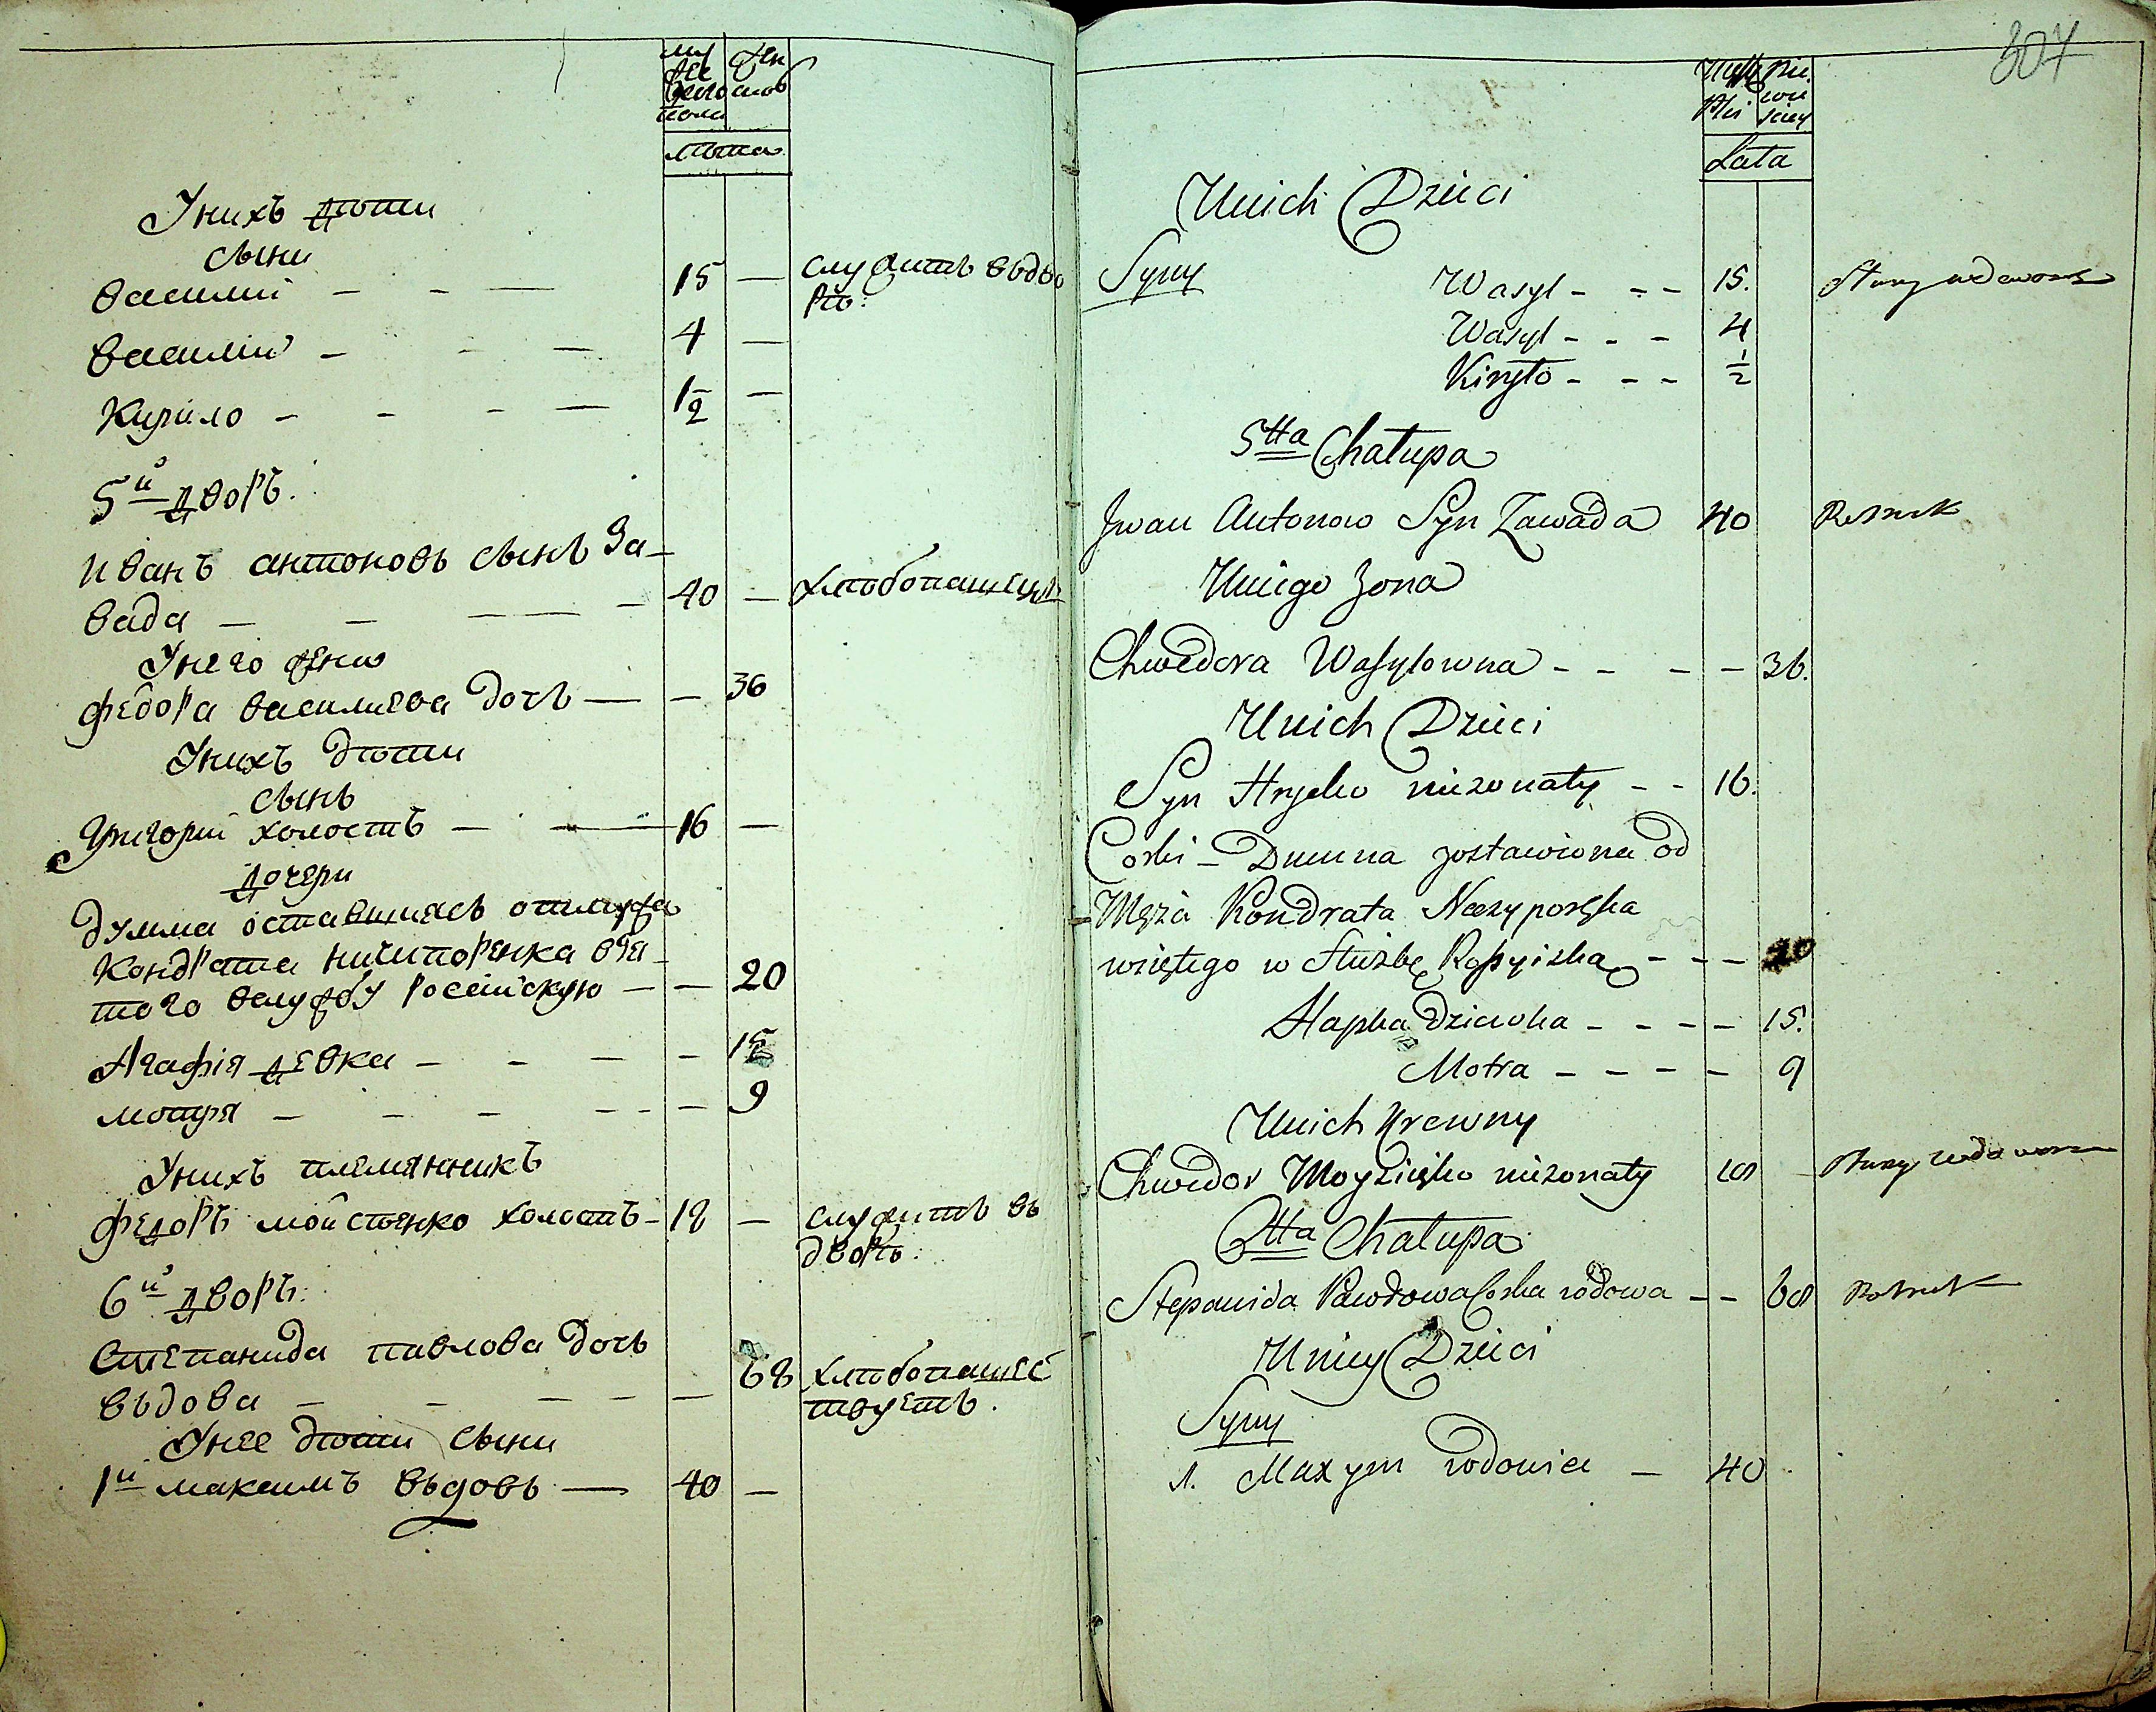 муже
ска
го
пола
жен
скаго
лѣта
Унихъ дѣти
сыни
василий – – — 15 — служитъ вдво
рѣ:
василий – – — 4 —
Кирило – – – — 1/2 —
5й дворъ:
иванъ антоновъ сынъ За–
вада – – — – 40 — хлѣбопашецъ
Унего жена
федора василиева дочь — — 36
Унихъ дѣти
сынъ
Григорий холостъ – — 16 —
дочери
думна оставшиясь отмужа
Кондрата ничипоренка взя–
того вслужбу российскую — — 20
Агафия девка – – – – 15
мотря – – – – – – 9
Унихъ племянникъ
федоръ мойсѣенко холостъ – 18 — служитъ въ
дворѣ:
6й дворъ:
Степанида павлова дочь
вьдова – – – – — 68 хлѣбопашес
твуетъ.
Унее дѣти сыни
1й максимъ вьдовъ — 40 —
304
Męz
kiei
Nie
wie
sciey
Lata
Unich Dzieci
Syny Wasyl - - - 15. Służy wedworze
Wasyl - - - 4
Kiryło - - - 1/2
5tta Chałupa
Jwan Antonow Syn Zawada 40 Rolnik
Uniego Zona
Chwedora Wasylowna - - - - 36.
Unich Dzieci
Syn Hryćko nieżonaty - - 16.
Corki - Dumna zostawiona od
Męża Kondrata Niczyporęka
wziętego w służbę Rossyiską - - - 20
Hapka dziewka - - - - 15.
Motra - - - - 9
Unich Krewny
Chwedor Moyzieięko nieżonaty 18 Służy wedworze
6tta Chałupa
Stepanida Pawłowa Corka wdowa - - 68 Rolnik
Uniey Dzieci
Syny
1. Maxym wdowiec - 40